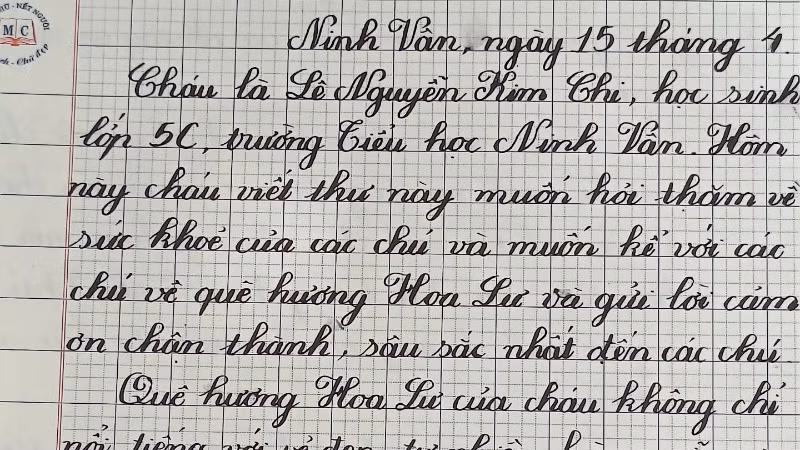 Ninh Vân, ngày 15 tháng 4.
Cháu là Lê Nguyễn Kim Chi, học sinh
lớp 5C, trường Tiểu học Ninh Vân. Hôm
này cháu viết thư này muốn hỏi thăm về
sức khoẻ của các chú và muốn kể với các
chú về quê hương Hoa Lư và gửi lời cảm
ơn chân thành, sâu sắc nhất đến các chú.
Quê hương Hoa Lư của cháu không chỉ
nổi tiếng với vẻ đẹp
NẾT NGƯỜI
MC